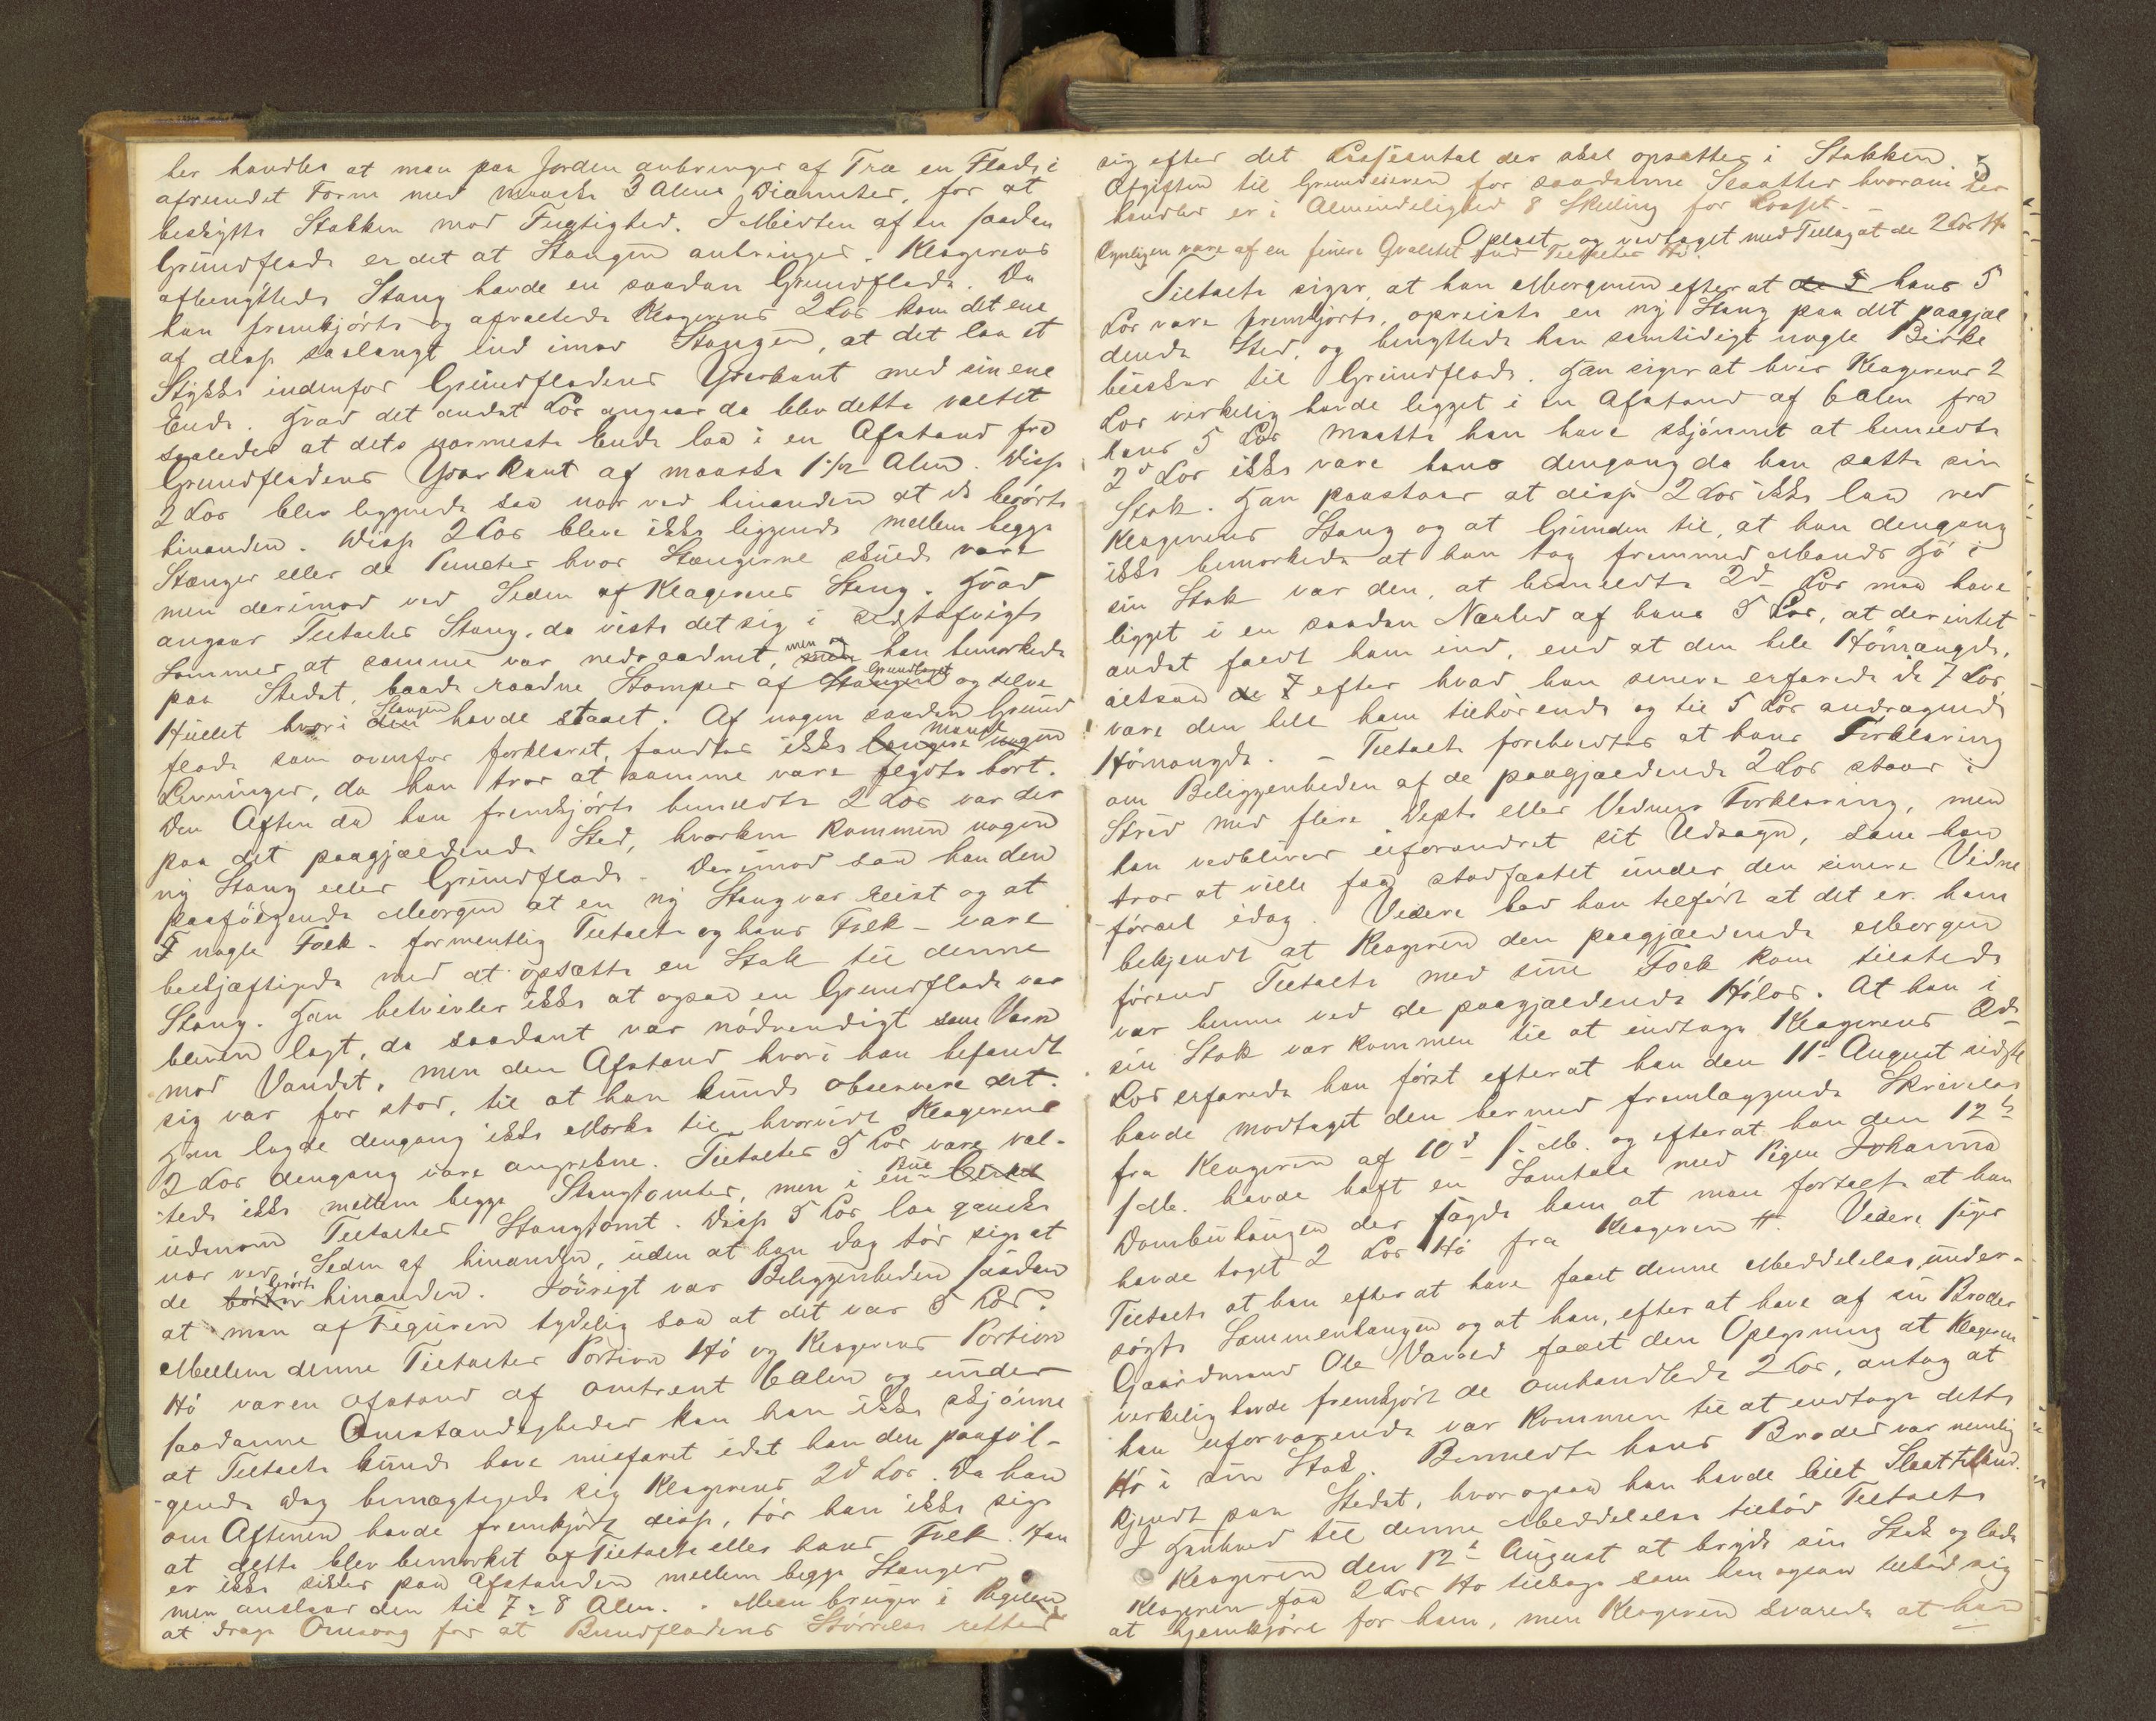 her handles at man paa Jorden anbringer af Træ en Flade i
afrundet Form med maaske 3 Alens Diameter, for at
beskytte Stakken mod Fugtighed. I Midten af en saadan
Grundflade er det at Stangen anbringes. Klagerens
afbenyttede Stang havde en saadan Grundflade. Da
han fremkjørte og afvæltede Klagerens 2 Lós kom det ene
af disse saalangt ind imod Stangen, at det laa et
Stykke indenfor Grundfladens Yderkant med sin ene
Ende. Hvad det andet Lós angaar da blev dette væltet
saaledes at dets nærmeste Ende laa i en Afstand fra
Grundfladens Yderkant af maaske 1 1/2 Alen. Disse
2 Lós blev liggende saa nær ved hinanden at de berørte
hinanden. Disse 2 Lós bleve ikke liggende mellem begge
Stænger eller de Puncter hvor Stængerne skulde være
men derimod ved Siden af Klagerens Stang. Hvad
angaar Tiltaltes Stang, da viste det sig i sidstafvigte
Sommer at samme var nedraadnet, men han bemærkede
paa Stedet, baade raadne Stomper af Grundlaget og selve
Hullet hvori Stangen havde staaet. Af nogen saadan Grund
flade som ovenfor forklaret, fandtes ikke mange
Levninger, da han tror at samme vare flydte bort.
Den Aften da han fremkjørte bemeldte 2 Lós var der
paa det paagjældende Sted, hverken kommen nogen
ny Stang eller Grundflade. Derimod saa han den
paafölgende Morgen at en ny Stang var reist og at
nogle Folk - formentlig Tiltalte og hans Folk - vare
beskjæftigede med at opsætte en Stak til denne
Stang. Han betvivler ikke at ogsaa en Grundflade var
bleven lagt, da saadant var nödvendigt som Værn
mod Vandet, men den Afstand hvori han befandt
sig var for stor, til at han kunde observere det.
Han lagde dengang ikke Mærke til hvorvidt Klagerens
2 Lós dengang vare angrebne. Tiltaltes 5 Lós vare væl-
tede ikke mellem begge Stangtomter, men i en Bue
udenom Tiltaltes Stangtomt. Disse 5 Lós laa ganske
nær ved Siden af hinanden, uden at han dog tör sige at
de berørte hinanden. Iövrigt var Beliggenheden saadan
at man af Figuren tydelig saa at det var 5 Lós.
Mellem denne Tiltaltes Portion Hö og Klagerens Portion
Hö var en Afstand af omtrent 6 Alen og under
saadanne Omstændigheder kan han ikke skjönne
at Tiltalte kunde have misfaret idet han den paaföl-
gende Dag bemægtigede sig Klagerens 2de Lós. Da han
om Aftenen havde fremkjört disse, tör han ikke sige
at dette blev bemærket af Tiltalte eller hans Folk. Han
er ikke sikker paa Afstanden mellem begge Stænger
men anslaar den til 7 à 8 Alen. Man bruger i Regelen
at drage Omsorg for at Bundfladens Størrelse retter
5
sig efter det Læsseantal der skal opsættes i Stakken.
Afgiften til Grundeieren for saadanne Slaatter hvorom her
handles er i Almindelighed 8 Skilling for Læsset.
Oplæst og vedtaget med Tillæg at de 2 Lós Hö
synligen vare af en finere Qvalitet end Tiltaltes Hö.
Tiltalte siger, at han Morgenen efter at de 5 hans 5
Lós vare fremkjørte, opreiste en ny Stang paa det paagjæl
dende Sted, og benyttede han samtidigt nogle Birke
buskar til Grundflade. Han siger at hvis Klagerens 2
Lós virkelig havde ligget i en Afstand af 6 Alen fra
hans 5 Lós maatte han have skjönnet at bemeldte
2de Lós ikke vare hans dengang da han satte sin
Stak. Han paastaar at disse 2 Lós ikke laa ved
Klagerens Stang og at Grunden til, at han dengang
ikke bemærkede at han tog fremmed Mands Hö i
sin Stak var den, at bemeldte 2de Lós maa have
ligget i en saadan Nærhed af hans 5 Lós, at der intet
andet faldt ham ind, end at den hele Hömængde,
altsaa de 7 efter hvad han senere erfarede de 7 Lós,
vare den hele ham tilhörende og til 5 Lós andragende
Hömængde. - Tiltalte foreholdtes at hans Forklaring
om Beliggenheden af de paagjældende 2 Lós staar i
Strid med flere Depts eller Vidners Forklaring, men
han vedbliver uforandret sit Udsagn, som han
tror at ville faa stadfæstet under den senere Vidne
förael idag. Videre bad han tilfört at det er ham
bekjendt at Klageren den paagjældende Morgen
förend Tiltalte med sine Folk kom tilstede
var henne ved de paagjældende Hölós. At han i
sin Stak var kommen til at indtage Klagerens 2de
Lós erfarede han först efterat han den 11te August sidstl
havde modtaget den hermed fremlæggende Skrivelse
fra Klageren af 10de s. M. og efterat han den 12te
s. M. havde haft en Samtale med Pigen Johanna
Dombuhaugen der sagde ham at man fortalte at han
havde taget 2 Lós Hö fra Klageren. Videre siger
Tiltalte at han efter at have faaet denne Meddelelse under-
sögte Sammenhangen og at han, efter at have af sin Broder
Gaardmand Ole faaet den Oplysning at Klageren
virkelig havde fremkjört de omhandlede 2 Lós, antog at
han uforvarende var kommen til at indtage dette
Hö i sin Stak. Bemeldte hans Broder var nemlig
kjendt paa Stedet, hvor ogsaa han havde leiet Slaatteland.
I Henhold til denne Meddelelse tilböd Tiltalte
Klageren den 12te August at bryde sin Stak og lade
Klageren faa 2 Lós Hö tilbage som han ogsaa tilböd sig
at hjemkjøre for ham, men Klageren svarede at han